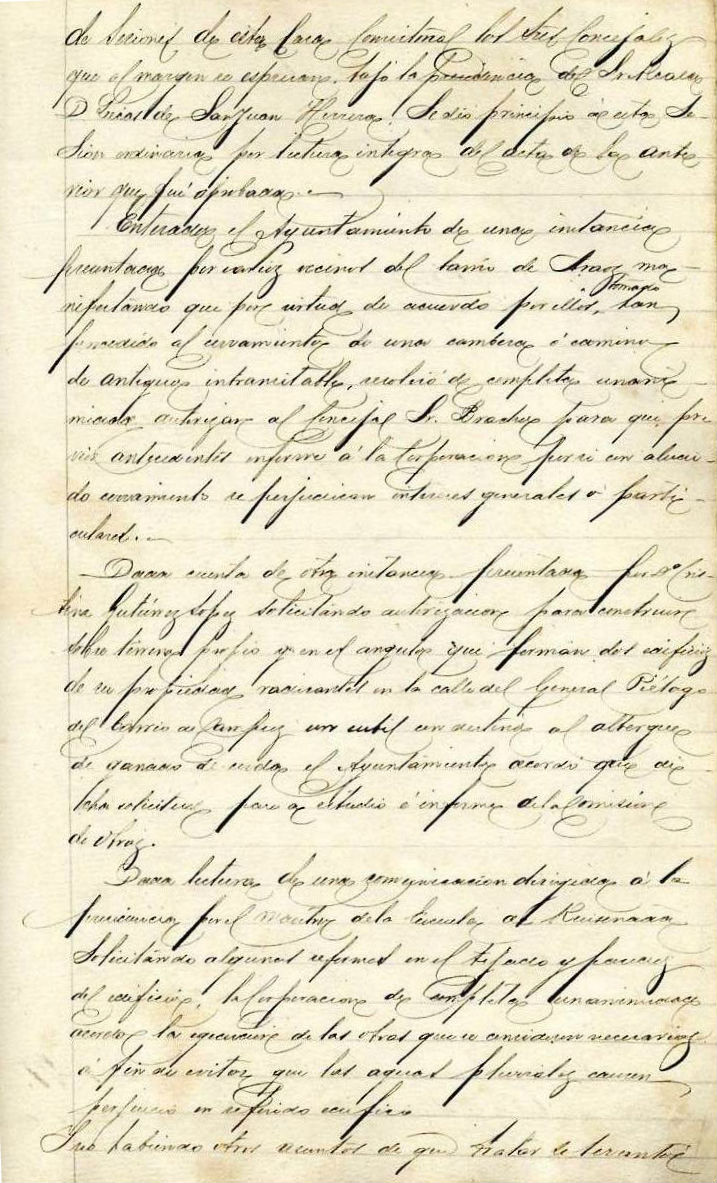 de Sesiones de esta Casa Consistorial los Sres Concejales
que al margen se espresan, bajo la presidencia del Sr. Alcalde
D. Lucas de San Juan Herrera. Se dió principio á esta Se-
sion ordinaria por lectura integra del acta de la ante-
rior que fué aprobada.
Enterado el Ayuntamiento de una instancia
presentada por varios vecinos del barrio de ma-
nifestando que por virtud de acuerdo por ellos tomado, han
procedido al cerramiento de una cambera ó camino
de antiguo intransitable, resolvió de completa unani-
midad autorizar al Concejal Sr. para que, pre
vios antecedentes informe á la Corporacion por si con aludi-
do cerramiento se perjudican intereses generales ó parti-
culares.
Dada cuenta de otra instancia presentada por Dª Cris-
tina Gutierrez Lopez solicitando autorizacion para construir
sobre terreno propio y en el angulo que forman dos edificios
de su propiedad radicantes en la calle del General Piélago
del barrio de un cubil con destino al albergue
de ganado de cerda, el Ayuntamiento acordó que di-
cha solicitud pase a estudio é informe de la Comision
de obras.
Dada lectura de una comunicacion dirigida á la
presidencia por el Maestro de la Escuela de Ruiseñada
solicitando algunas reformas en el tejado y paredes
del edificio, la Corporacion de completa unanimidad
acordó la ejecucion de las obras que se consideren necesarias
á fin de evitar que las aguas pluviales causen
perjuicio en referido edificio
Y no habiendo otros asuntos de que tratar se levantó